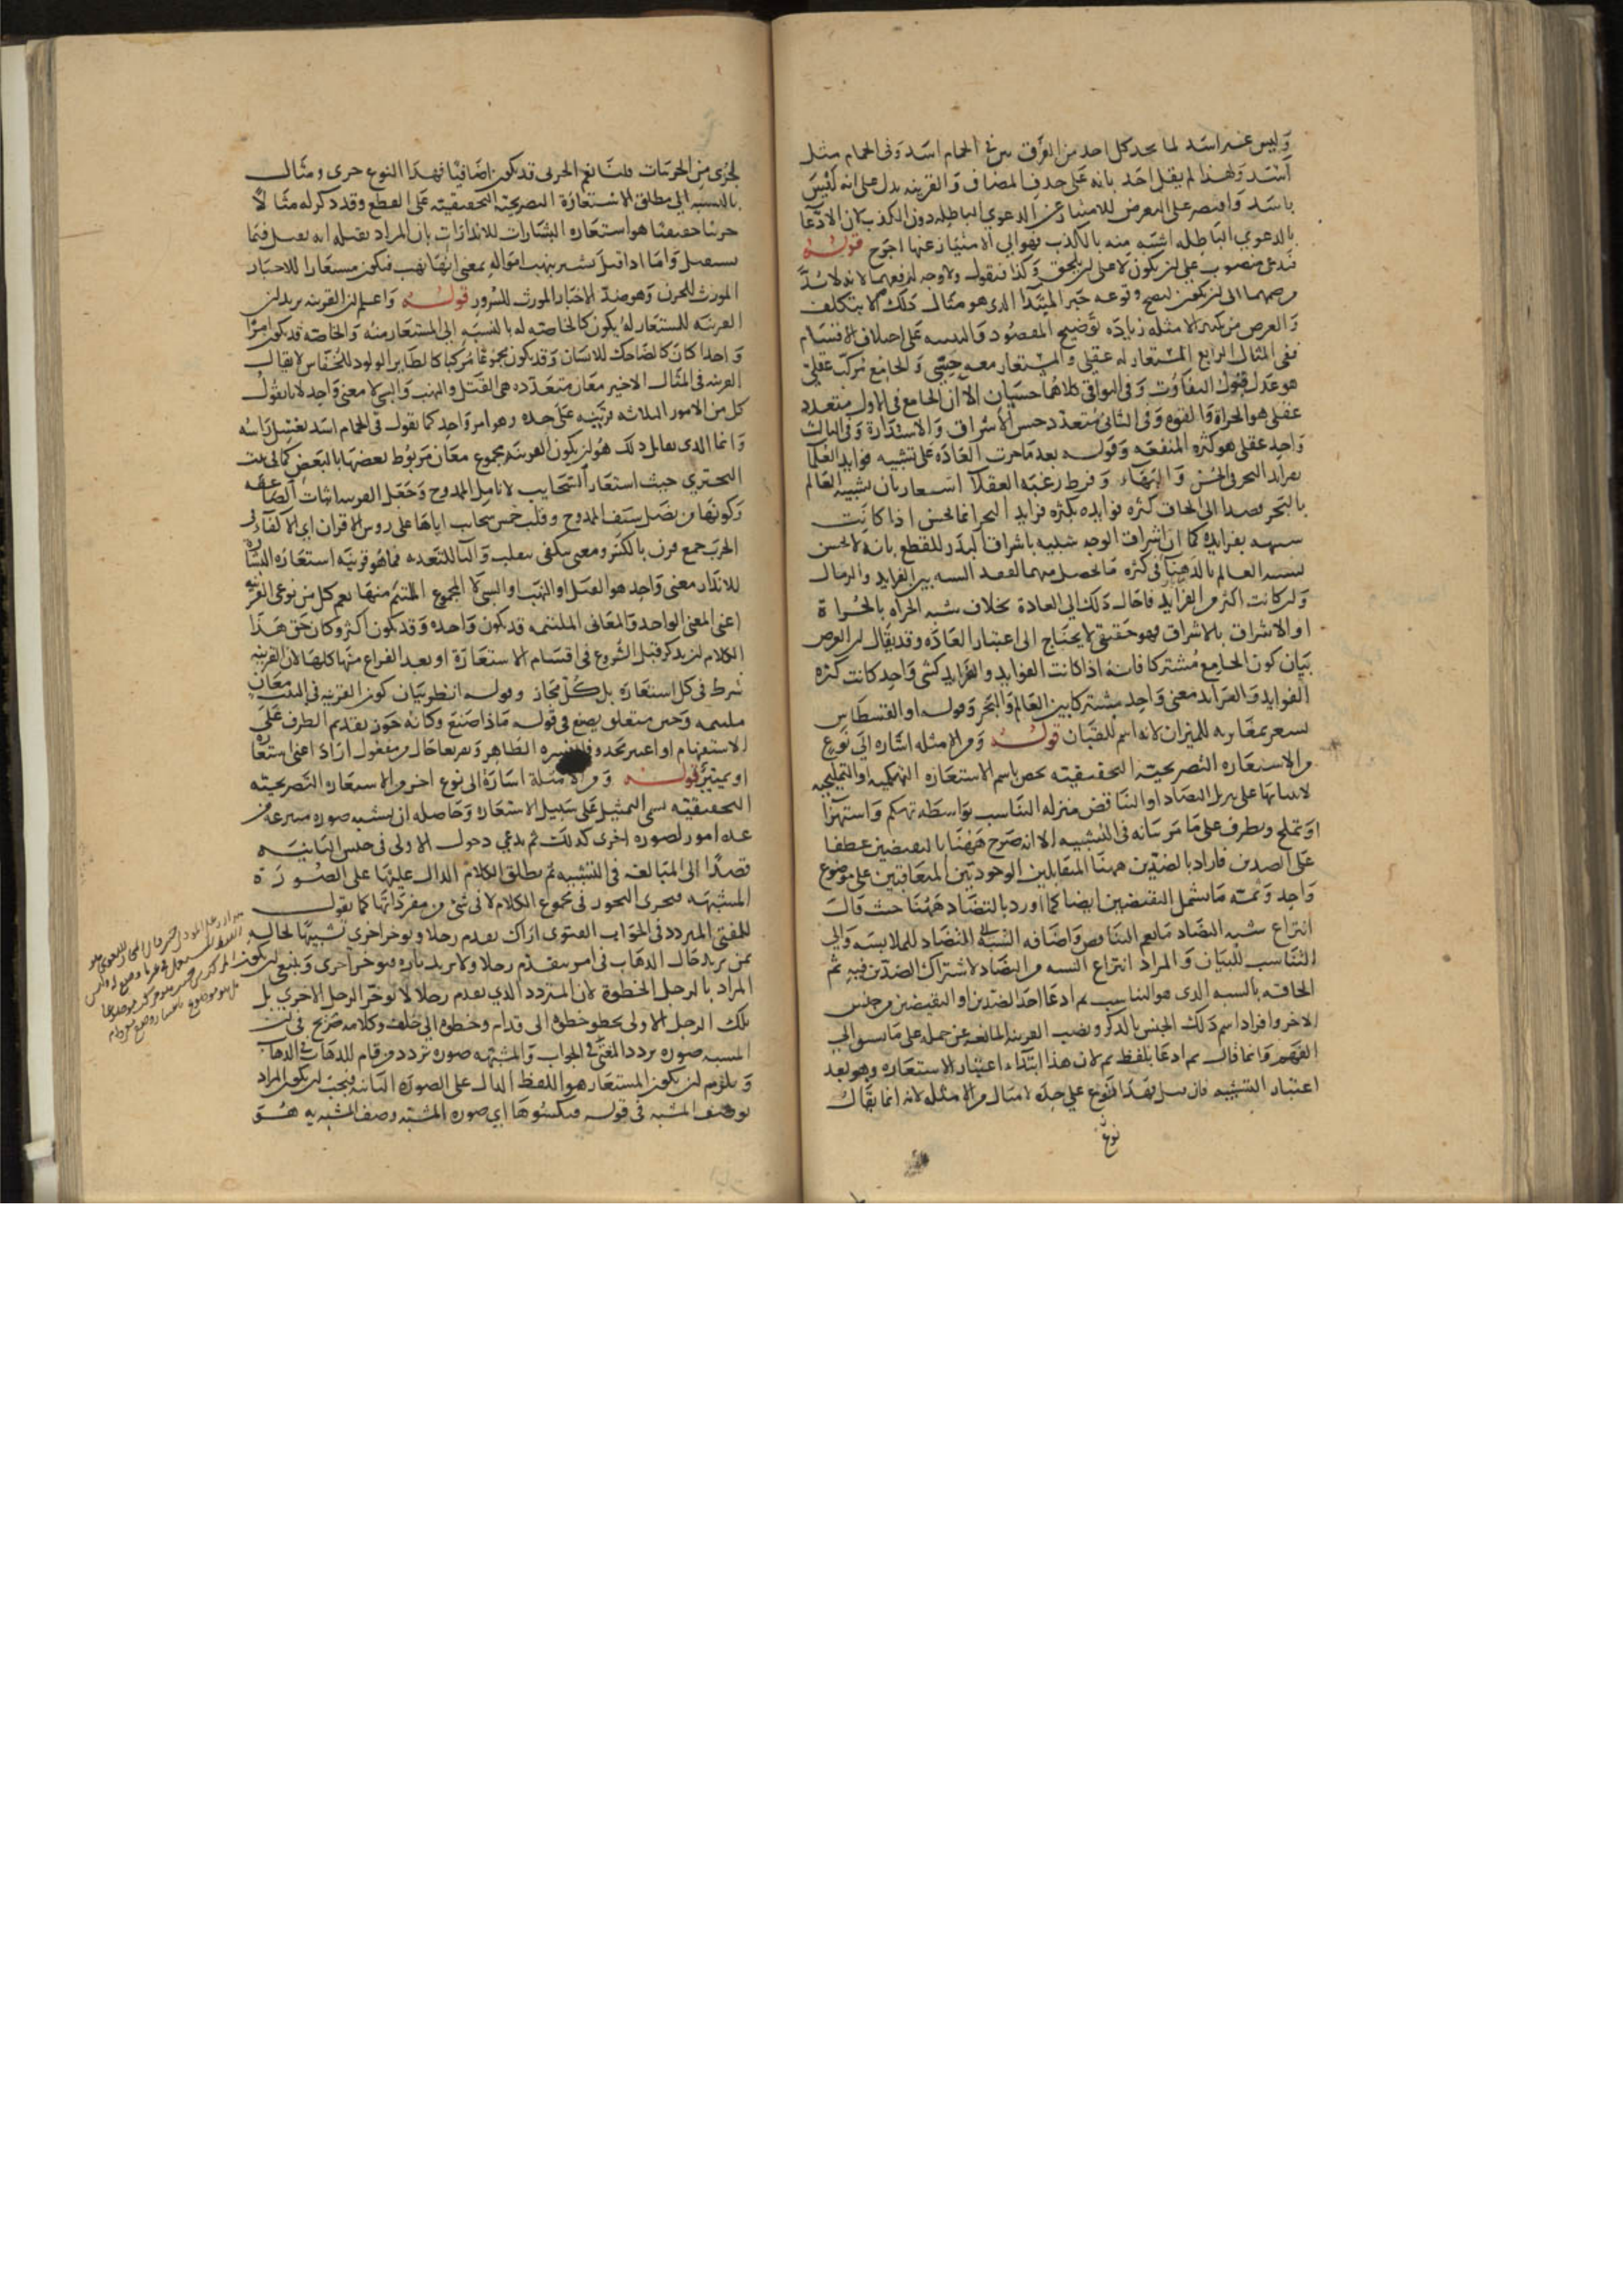 وليس غير اسد لما يجد كل احد من الفرق بين في الحمام اسد وفى الحمام مثل
اسد ولهذا لم يقل احد بانه على حذف المضاف والقرينه يدل على انه ليس
باسد واقتصر على التعرض للامتياز عن الدعوى الباطله دون الكذب لان الادعا
بالدعوى الباطله اشبه منه بالكذب فهو الى الامتياز عنها احوج قوله
فندعى منصوب على ان يكون لا على ان يلحق وكذا فنقول ولا وجه لرفعهما لانه لا بد
من ضمهما الى ان يكون ليصح وقوعه خبر المبتدا الذى هو مثال ذلك الا بتكلف
والغرض من كثرة الامثله زياده توضيح المقصود والتنبيه على اختلاف الاقسام
ففى المثال الرابع المستعار له عقلى والمستعار منه حسى والجامع مركب عقلى
هو عدل قبول التفاوت وفى البواقى كلاهما حسيان الا ان الجامع فى الاول متعدد
عقلى هو الجراة والقوه وفى الثانى متعدد حسى الاشراق والاستدارة وفى الثالث
واحد عقلى هو كثره المنفعه وقوله بعد ما جرت العاده على تشبيه فوايد العلما
بفرايد البحر فى الحسن والبهاء وفرط رغبه العقلا اشعار بان تشبيه العالم
بالبحر قصدا الى الحاق كثره فوايده بكثره فرايد البحر انما يحسن اذا كانت
شبيهه بفرايده كما ان اشراق الوجه شبيه باشراق البدر للقطع بانه لا يحسن
تشبيه العالم بالدهناء فى كثره ما يحصل منهما لفقد الشبه بين الفرايد والرمال
وان كانت اكثر من الفرايد فاحال ذلك الى العادة بخلاف شبه الجراه بالجراة
او الاشراق بالاشراق فهو حقيقى لا يحتاج الى اعتبار العاده وقد يقال ان الغرض
بيان كون الجامع مشتركا فانه اذا كانت الفوايد والفرايد كشى واحد كانت كثره
الفوايد والفرايد معنى واحد مشتركا بين العالم والبحر وقوله او القسطاس
يشعر بمغايرته للميزان لانه اسم للقبان قوله ومن الامثله اشاره الى نوع
من الاستعاره التصريحيه التحقيقيه يخص باسم الاستعاره التهكميه او التمليحيه
لابتنائها على تنزيل التضاد او التناقض منزله التناسب بواسطه تهكم واستهزا
او تملح وتظرف على ما مر بيانه فى التشبيه الا انه صرح ههنا بالنقيضين عطفا
على الضدين فاراد بالضدين ههنا المتقابلين الوجوديين المتعاقبين على موضوع
واحد وثمه ما يشمل النقيضين ايضا كما اورد بالتضاد ههنا حيث قال
انتزاع شبه التضاد ما يعم التناقض واضافه الشبه الى التضاد للملابسه والى
التناسب للبيان والمراد انتزاع الشبه من التضاد لاشتراك الضدين فيه ثم
الحاقه بالشبه الذى هو التناسب ثم ادعا احد الضدين او النقيضين من جنس
الاخر وافراد اسم ذلك الجنس بالذكر ونصب القرينه المانعه عن حمله على ما يسبق الى
الفهم وانما قال ثم ادعا بلفظ ثم لان هذا ابتداء اعتبار الاستعاره وهو بعد
اعتبار التشبيه فان قيل هذا نوع على حده لا مثال من الامثله لانه انما يقال
نوع
لجزى من الجزئيات قلنا نعم الجزئى قد يكون اضافيا فهذا النوع جزى ومثال
بالنسبه الى مطلق الاستعارة التصريحيه التحقيقيه على القطع وقد ذكر له مثالا
جزئيا حقيقيا هو استعاره البشارات للانذارات بان المراد بقتله انه يقتل فيما
يستقبل واما اذا قيل تبشير بنهب امواله بمعنى انها نهب فيكون مستعارا للاخبار
المورث للحزن وهو ضد الاخبار المورث للسرور قوله واعلم ان القرينه يريد ان
القرينه للمستعار له يكون كالخاصه له بالنسبه الى المستعار منه والخاصه قد يكون امرا
واحدا كان كالضاحك للانسان وقد يكون مجموعا مركبا كالطاير الولود للخفاش لا يقال
القرينه فى المثال الاخير معان متعدده هى القتل والنهب والسبى لا معنى واحد لانا نقول
كل من الامور الثلاثه قرينه على حده وهو امر واحد كما تقول فى الحمام اسد يغتسل راسه
وانما الذى يقابل ذلك هو ان يكون القرينه مجموع معان مربوط بعضها بالبعض كما فى بيت
البحترى حيث استعار السحايب لانامل الممدوح وجعل القرينه اثبات الصاعقه
وكونها من نصل سيف الممدوح وقلب خمس سحايب اياها على روس الاقران اى الاكفاء فى
الحرب جمع قرن بالكسر ومعنى ينكفى ينقلب والباء للتعديه فما هو قرينه استعاره البشاره
للانذار معنى واحد هو القتل او النهب او السبى لا المجموع الملتئم منها نعم كل من نوعى القرينه
اعنى المعنى الواحد والمعانى الملتئمه قد يكون واحده وقد يكون اكثر وكان حق هذا
الكلام ان يذكر قبل الشروع فى اقسام الاستعارة او بعد الفراغ منها كلها لان القرينه
شرط فى كل استعاره بل كل مجاز وقوله انظر بيان كون القرينه فى البيت معان
ملتئمه وحين متعلق بصنع فى قوله ماذا صنع وكانه جوز تقديم الظرف على
الاستفهام او اعتبر محذوفا يفسره الظاهر وتفريعا حال من مفعول اراد اعنى استعاره
او تمييز قوله ومن الامثلة اشارة الى نوع اخر من الاستعاره التصريحيه
التحقيقيه يسمى التمثيل على سبيل الاستعاره وحاصله ان يشبه صوره منتزعه من
عده امور لصوره اخرى كذلك ثم يدعى دخول الاولى فى جنس الثانيه
قصدا الى المبالغه فى التشبيه ثم يطلق الكلام الدال عليها على الصورة
المشبهه فيجرى التجوز فى مجموع الكلام لا فى شى من مفرداتها كما تقول
للمفتى المتردد فى الجواب الفتوى اراك تقدم رجلا وتوخر اخرى تشبيها لحاله
بمن يريد حال الذهاب فى امر يتقدم رجلا ولا يريد تاره فيوخر اخرى وينبغى ان يكون
المراد بالرجل الخطوة لان المتردد الذى يقدم رجلا لا يوخر الرجل الاخرى بل
تلك الرجل الاولى يخطو خطوه الى قدام وخطوه الى خلف وكلامه صريح فى ان
المشبه صوره تردد المفتى فى الجواب والمشبه به صوره تردد من قام للذهاب فى الذهاب
ويلزم ان يكون المستعار هو اللفظ الدال على الصوره الثانيه فيجب ان يكون المراد
بوصف المشبه فى قوله فيكسوها اى صوره المشبه وصف المشبه به هو